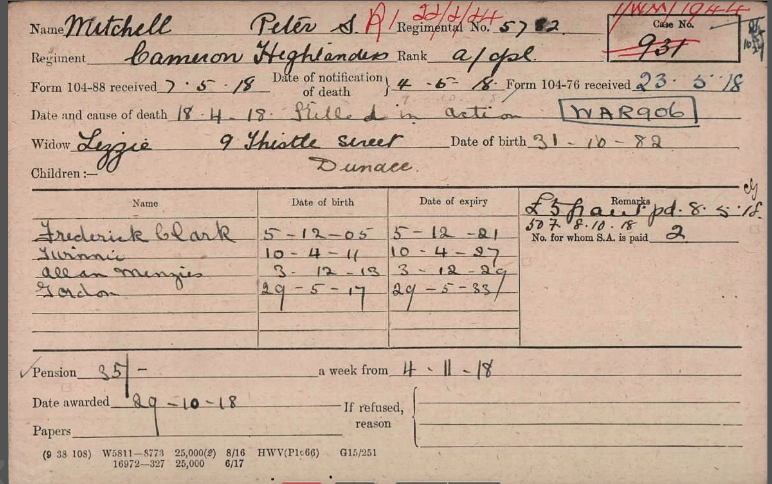 Name Mitchell Peter S. R/ 22/2/44 Regimental No. 5782 Case No. 931
Regiment Cameron Highlanders Rank a/cpl.
Form 104-88 received 7 . 5 . 18 Date of notification of death } 4 - 5 - 18. Form 104-76 received 23 . 5 . 18
Date and cause of death 18 . 4 . 18. Killed in action WAR906
Widow Lizzie 9 Thistle Street Date of birth 31 - 10 - 82
Children :— Dunace.
Name Date of birth Date of expiry Remarks
£5 grant pd. 8 . 5 . 18.
507 8.10.18
Frederick Clark 5 - 12 - 05 5 - 12 - 21 No. for whom S.A. is paid 2
Winnie 10 - 4 - 11 10 - 4 - 27
Allan Menzies 3 - 12 - 13 3 - 12 - 29
Gordon 29 - 5 - 17 29 - 5 - 33
Pension 35/- a week from 4 - 11 - 18
Date awarded 29 - 10 - 18 If refused, reason
Papers
(9 38 108) W5811—8773 25,000(2) 8/16 HWV(P1066) G15/251
16972—327 25,000 6/17